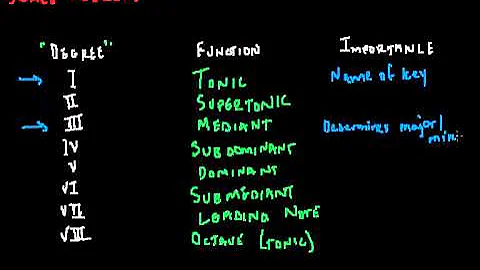 "DEGREE" FUNCTION IMPORTANCE
I TONIC Name of key
II SUPERTONIC
III MEDIANT Determines major/
IV SUBDOMINANT
V DOMINANT
VI SUBMEDIANT
VII LEADING NOTE
VIII OCTAVE (TONIC)